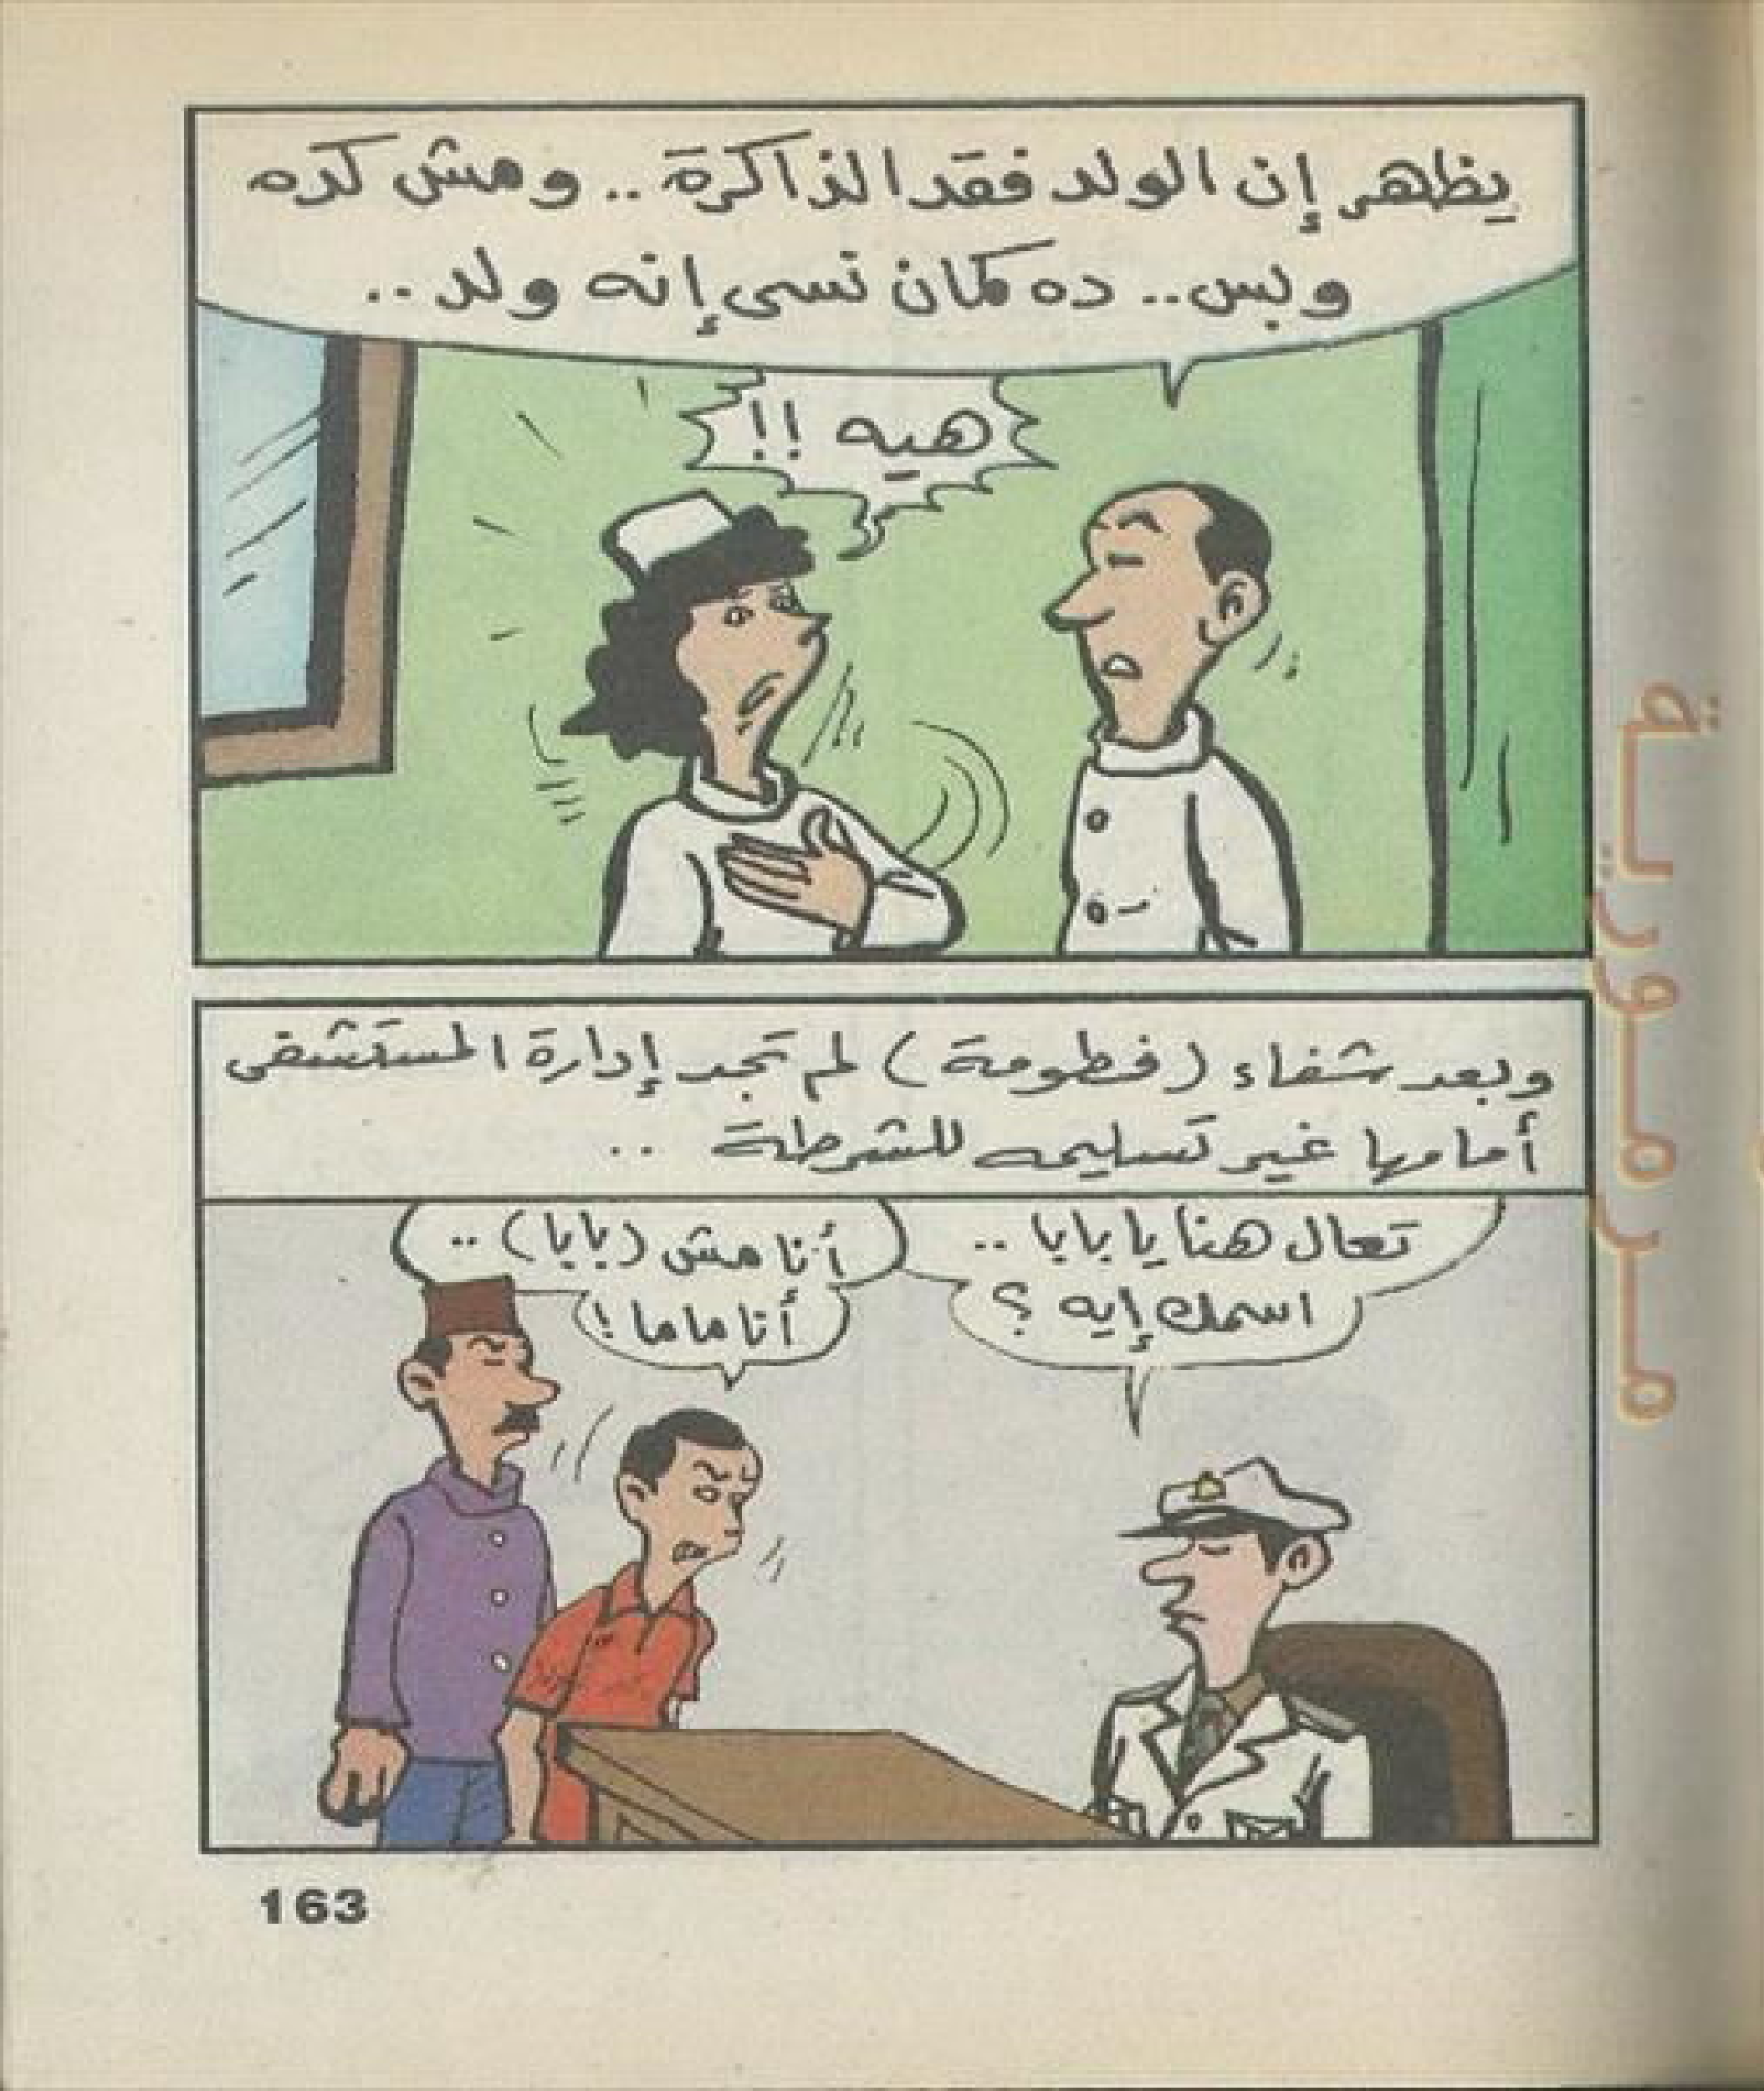 يظهر إن الولد فقد الذاكرة .. ومش كده
وبس .. ده كمان نسى إنه ولد ..
هيه !!
وبعد شفاء (فطومة) لم تجد إدارة المستشفى
أمامها غير تسليمه للشرطة ..
تعال هنا يا بابا ..
اسمك إيه ؟
أنا مش (بابا) ..
أنا ماما !
163
مرمورية